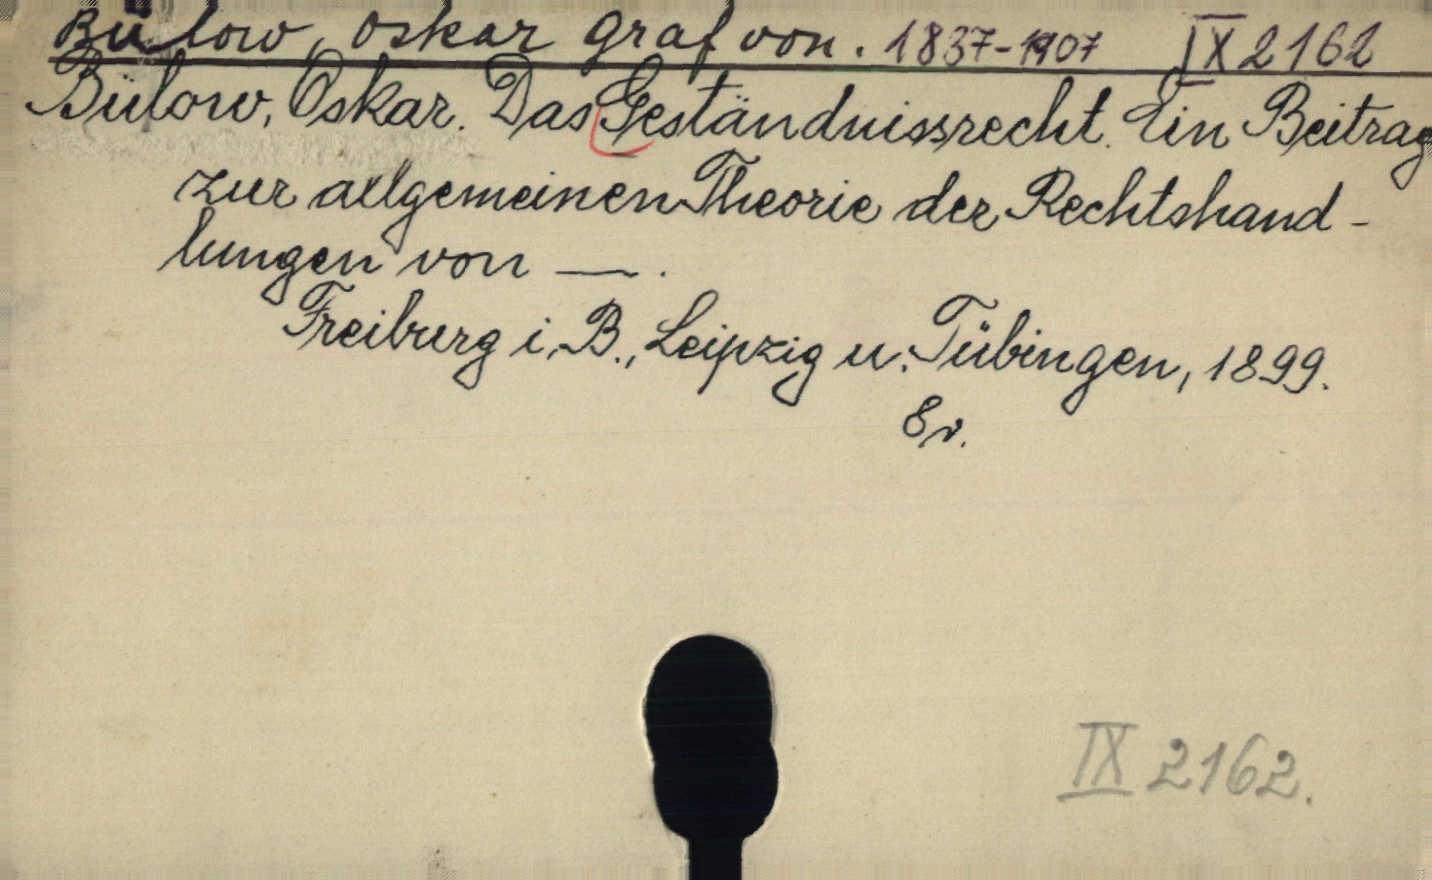 Bülow, Oskar Graf von. 1837-1907 IX 2162
Bülow, Oskar. Das Geständnissrecht. Ein Beitrag
zur allgemeinen Theorie der Rechtshand-
lungen von —.
Freiburg i. B., Leipzig u. Tübingen, 1899.
8r.
IX 2162.